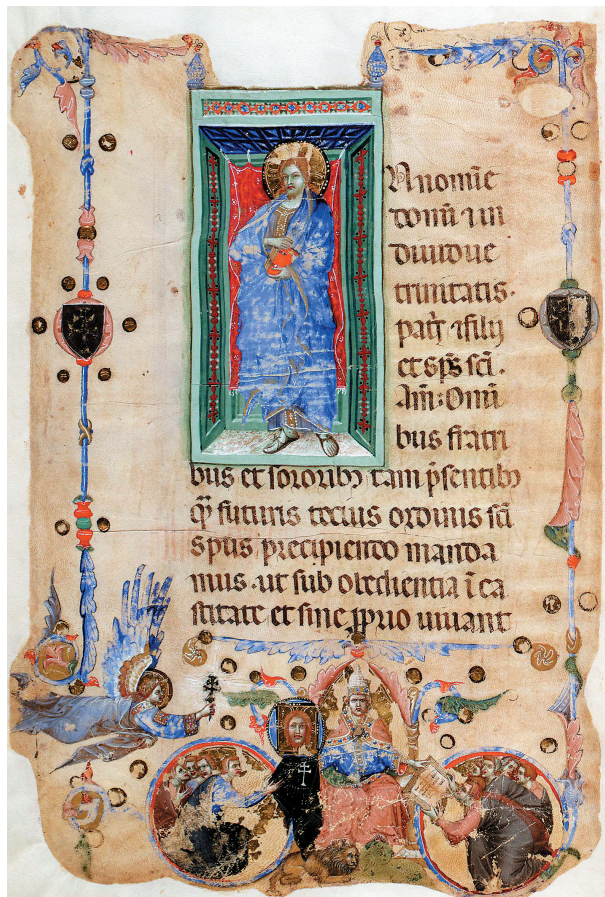 N nomīe
domī⁊ in
diuidue
trinitatis.
patⁱs ⁊ filij
et sp̄s sc̄i.
Am̄: Omī
bus fratri
bus et sororibꝫ tam p̄sentibꝫ
ꝙ̄ futuris tocius ordinis sc̄i
sp̄us precipiendo manda
mus. ut sub obediencia ī ca
stitate et sine ꝓprio uiuant